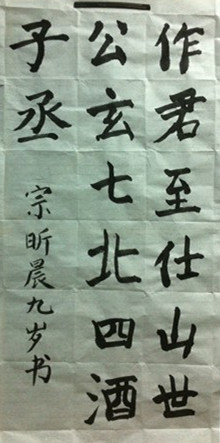 作君至仕山世
公玄七北四酒
子丞
宗昕晨九岁书